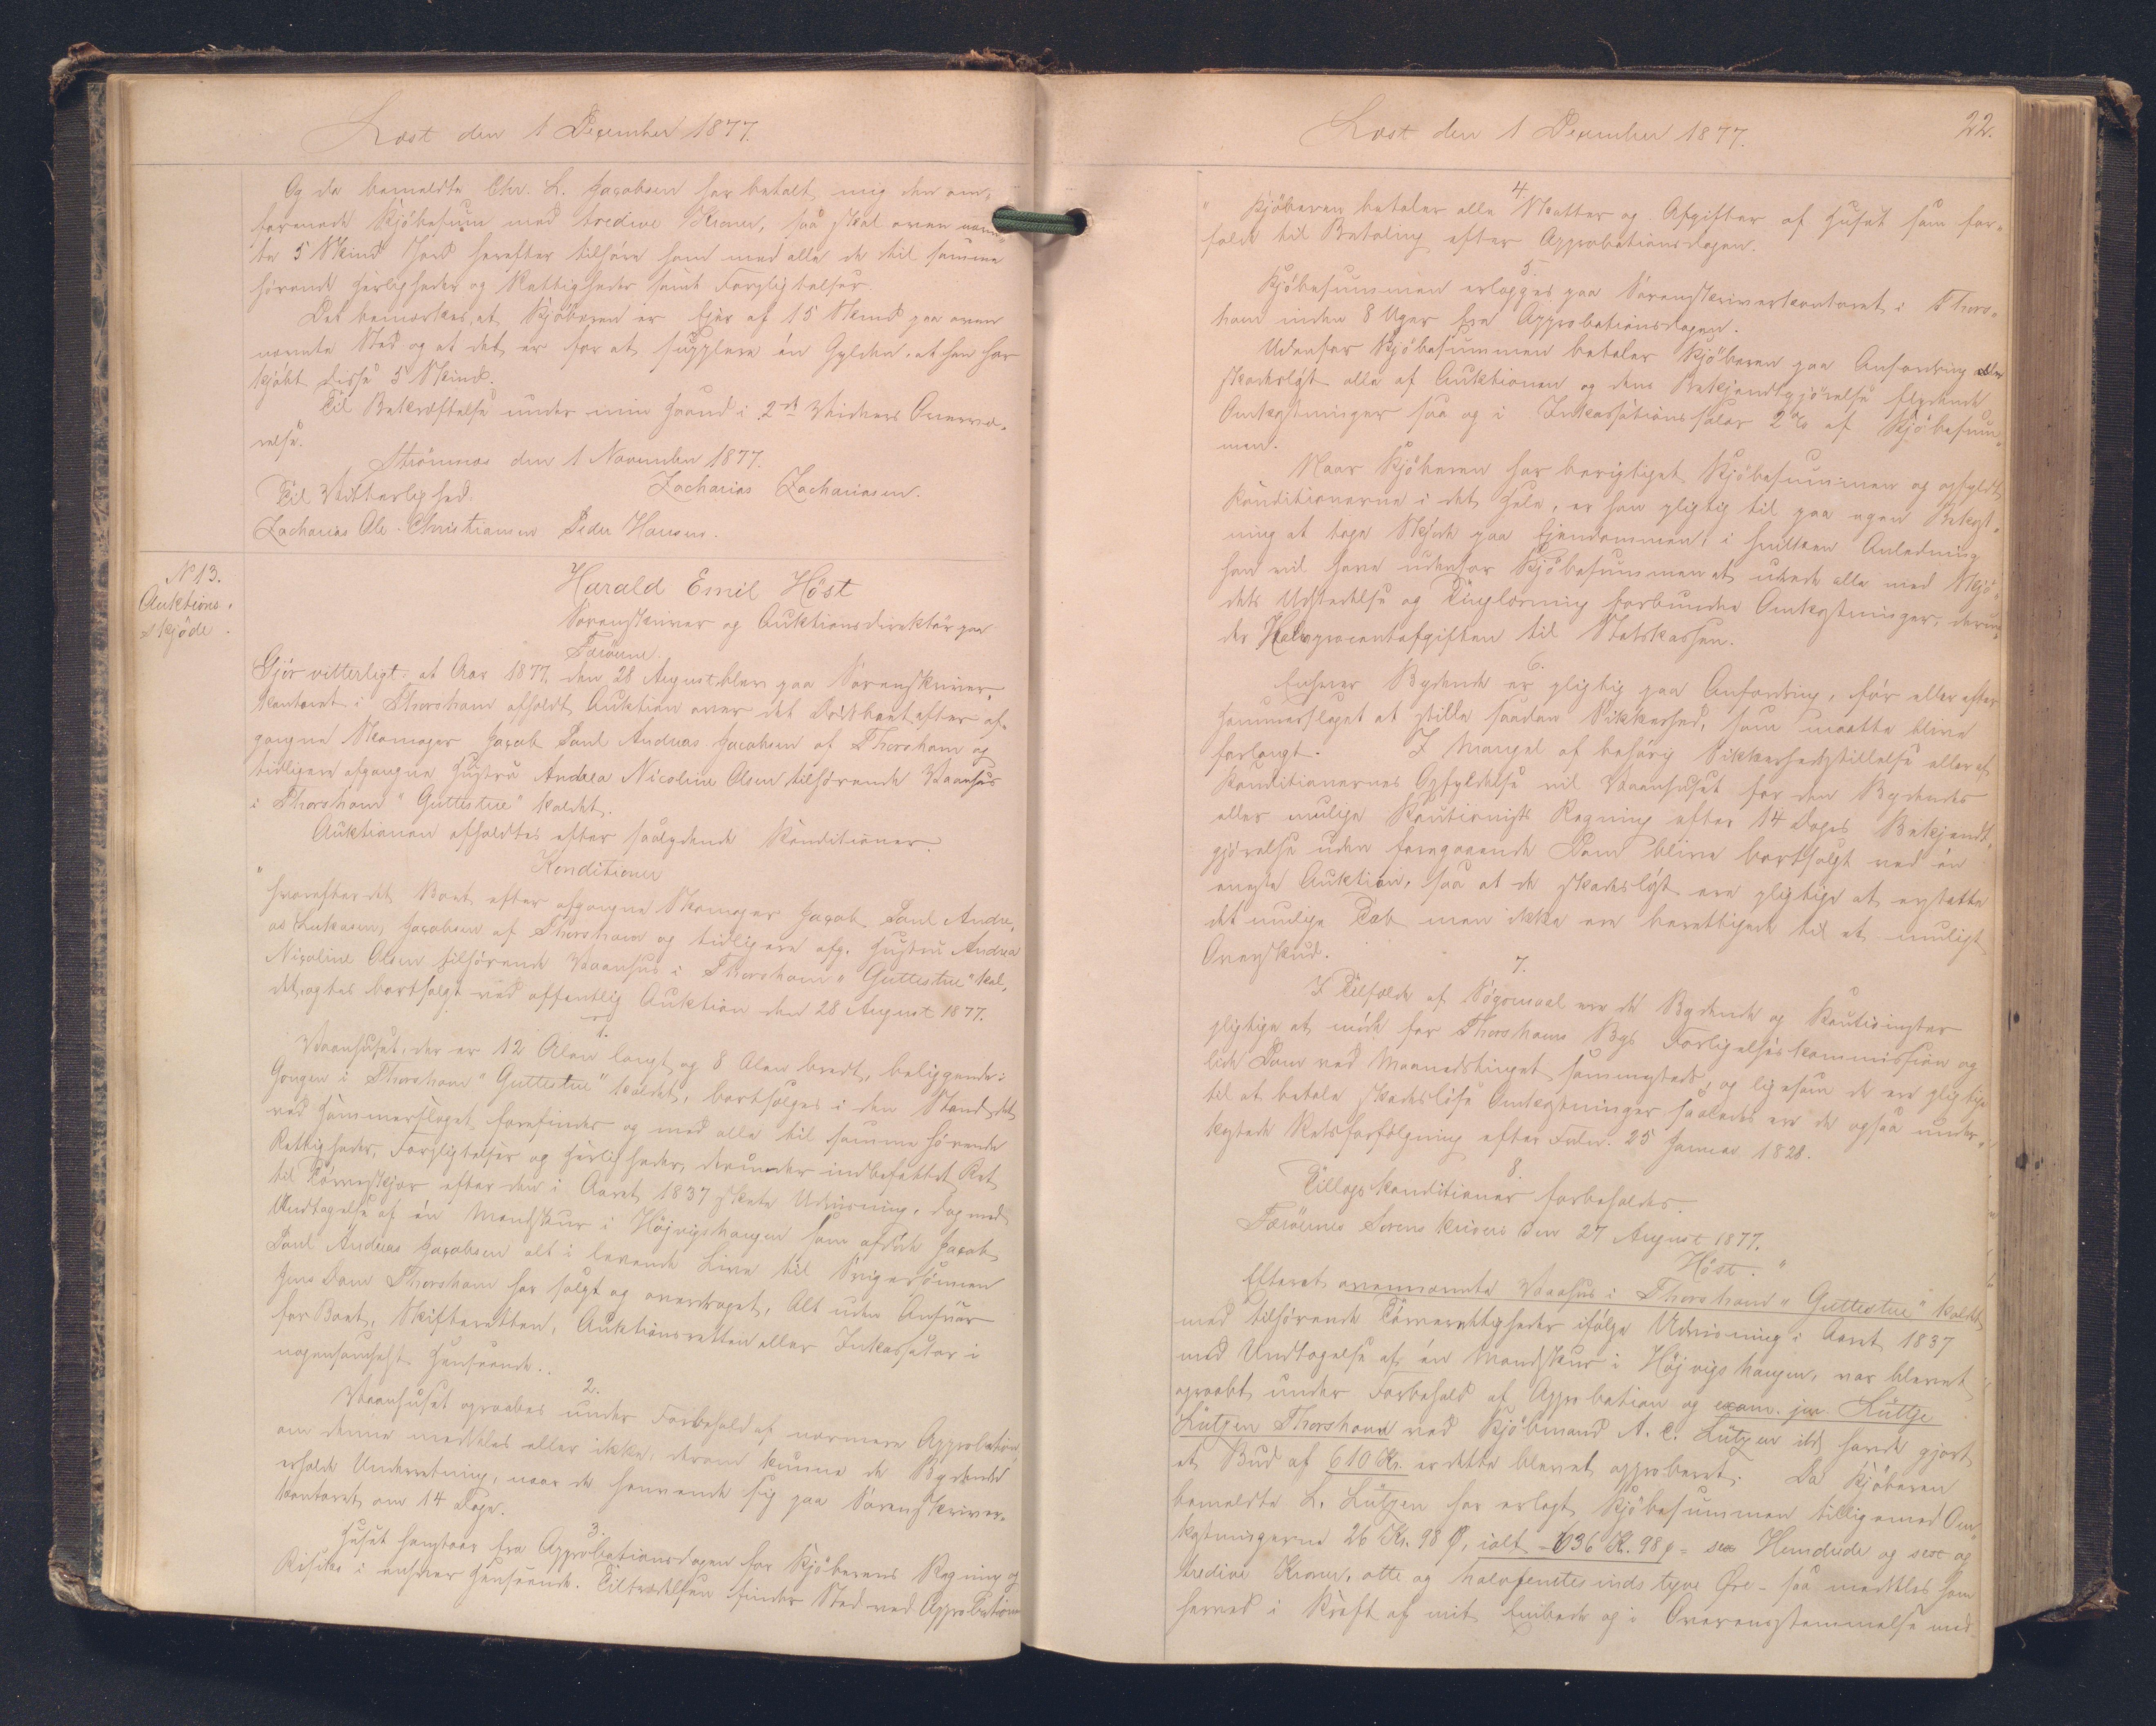 Læst den 1 December 1877.
Og da bemeldte Chr. L. Jacobsen har betalt mig den om-
forenede Kjöbesum med tredive Kroner, saa skal oven nævn-
te 5 Skind Jord herefter tilhöre ham med alle de til samme
hörende Herligheder og Rettigheder samt Forpligtelser.
Det bemærkes, at Kjöberen er Ejer af 15 Skind paa oven
nævnte Sted og at det er for at supplere én Gylden, at han har
kjöbt disse 5 Skind.
Til Bekræftelse under min Haand i 2de Vidners Overvæ-
relse.
Strömnæs den 1 November 1877.
Zacharias Zachariasen.
Til Vitterlighed:
Zacharias Ole-Christiansen Peder Hansen.
N 13.
Auktions-
skjöde.
Harald Emil Höst
Sorenskriver og Auktionsdirektör paa
Færöerne.
Gjör vitterligt: at Aar 1877, den 28 August blev paa Sorenskriver-
kontoret i Thorshavn afholdt Auktion over det Dödsboet efter af-
gangne Skomager Jacob Poul Andreas Jacobsen af Thorshavn og
tidligere afgangne Hustru Andrea Nicoline Olsen tilhörende Vaanhus
i Thorshavn "Guttestue" kaldet.
Auktionen afholdtes efter saalydende Konditioner.
Konditioner
"hvorefter det Boet efter afgangne Skomager Jacob Poul Andre-
as Lukasen, Jacobsen af Thorshavn og tidligere afg. Hustru Andrea
Nicoline Olsen tilhörende Vaanhus i Thorshavn "Guttestue" kal-
det, agtes bortsolgt ved offentlig Auktion den 28 August 1877.
1.
Vaanhuset, der er 12 Alen langt og 8 Alen bredt, beliggende i
Gongen i Thorshavn "Guttestue" kaldet, bortsælges i den Stand det
ved Hammerslaget forefindes og med alle til samme hörende
Rettigheder, Forpligtelser og Herligheder, derunder indbefattet Ret
til Törveskjær efter den i Aaret 1837 skete Udvisning, dog med
Undtagelse af én Mandskur i Höjvigshaugen som afdöde Jacob
Poul Andreas Jacobsen alt i levende Live til Svigersönnen
Jens Dam Thorshavn har solgt og overdraget, Alt uden Ansvar
for Boet, Skifteretten, Auktionsretten eller Inkassator i
nogensomhelst Henseende.
2.
Vaanhuset opraabes under Forbehold af nærmere Approbation,
om denne meddeles eller ikke, derom kunne de Bydende
erholde Underretning, naar de henvende sig paa Sorenskriver-
kontoret om 14 Dage.
3.
Huset henstaar fra Approbationsdagen for Kjöberens Regning og
Risiko i enhver Henseende. Tiltrædelsen finder Sted ved Approbationen
Læst den 1 December 1877.
22.
4.
" Kjöberen betaler alle Skatter og Afgifter af Huset som for-
falde til Betaling efter Approbationsdagen.
5.
Kjöbesummen erlægges paa Sorenskriverkontoret i Thors-
havn inden 8 Uger fra Approbationsdagen.
Udenfor Kjöbesummen betaler Kjöberen paa Anfordring
skadeslöst alle af Auktionen og dens Bekjendtgjörelse flydende
Omkostninger saa og i Inkassationssalær 2% af Kjöbesum-
men.
Naar Kjöberen har berigtiget Kjöbesummen og opfyldt
Konditionerne i det Hele, er han pligtig til paa egen Bekost-
ning at tage Skjöde paa Ejendommen, i hvilken Anledning
han vil have udenfor Kjöbesummen at udrede alle med Skjö-
dets Udstedelse og Tinglæsning forbundne Omkostninger, derun-
der Halvprocentafgiften til Statskassen.
6.
Enhver Bydende er pligtig paa Anfordring, för eller efter
Hammerslaget at stille saadan Sikkerhed, som maatte blive
forlangt. I Mangel af behörig Sikkerhedsstillelse eller af
Konditionernes Opfyldelse vil Vaanhuset for den Bydendes
eller mulige Kautionists Regning efter 14 Dages Bekjendt-
gjörelse uden foregaaende Dom blive bortsolgt ved én
eneste Auktion, saa at de skadeslöst ere pligtige at erstatte
det mulige Tab men ikke ere berettigede til et muligt
Overskud.
7.
I Tilfælde af Sögsmaal ere de Bydende og Kautionister
pligtige at möde for Thorshavns Bys Forligelseskommission og
lide Dom ved Maanedstinget sammesteds, og ligesom de ere pligtige
til at betale skadeslöse Omkostninger saaledes ere de ogsaa under-
kastede Retsforfölgning efter Frdn. 25 Januar 1828.
8.
Tillægskonditioner forbeholdes.
Færöernes Sorenskriveri den 27 August 1877.
Höst."
Efterat ovennævnte Vaanhus i Thorshavn "Guttestue" kaldet
med tilhörende Törverettigheder ifölge Udvisning i Aaret 1837
med Undtagelse af én Mandskur i Höjvigshaugen, var blevet
opraabt under Forbehold af Approbation og exam. jur. Lüttje
Lützen Thorshavn ved Kjöbmand A. C. Lützen ibd havde gjort
et Bud af 610 Kr. er dette blevet approberet. Da Kjöberen
bemeldte L. Lützen har erlagt Kjöbesummen tilligemed Om-
kostningerne 26 Kr. 98 Ø, ialt 636 Kr. 98 ø = sex Hundrede og sex og
tredive Kroner, otte og halvfemtesindstyve Øre - saa meddeles ham
herved i Kraft af mit Embede og i Overensstemmelse med